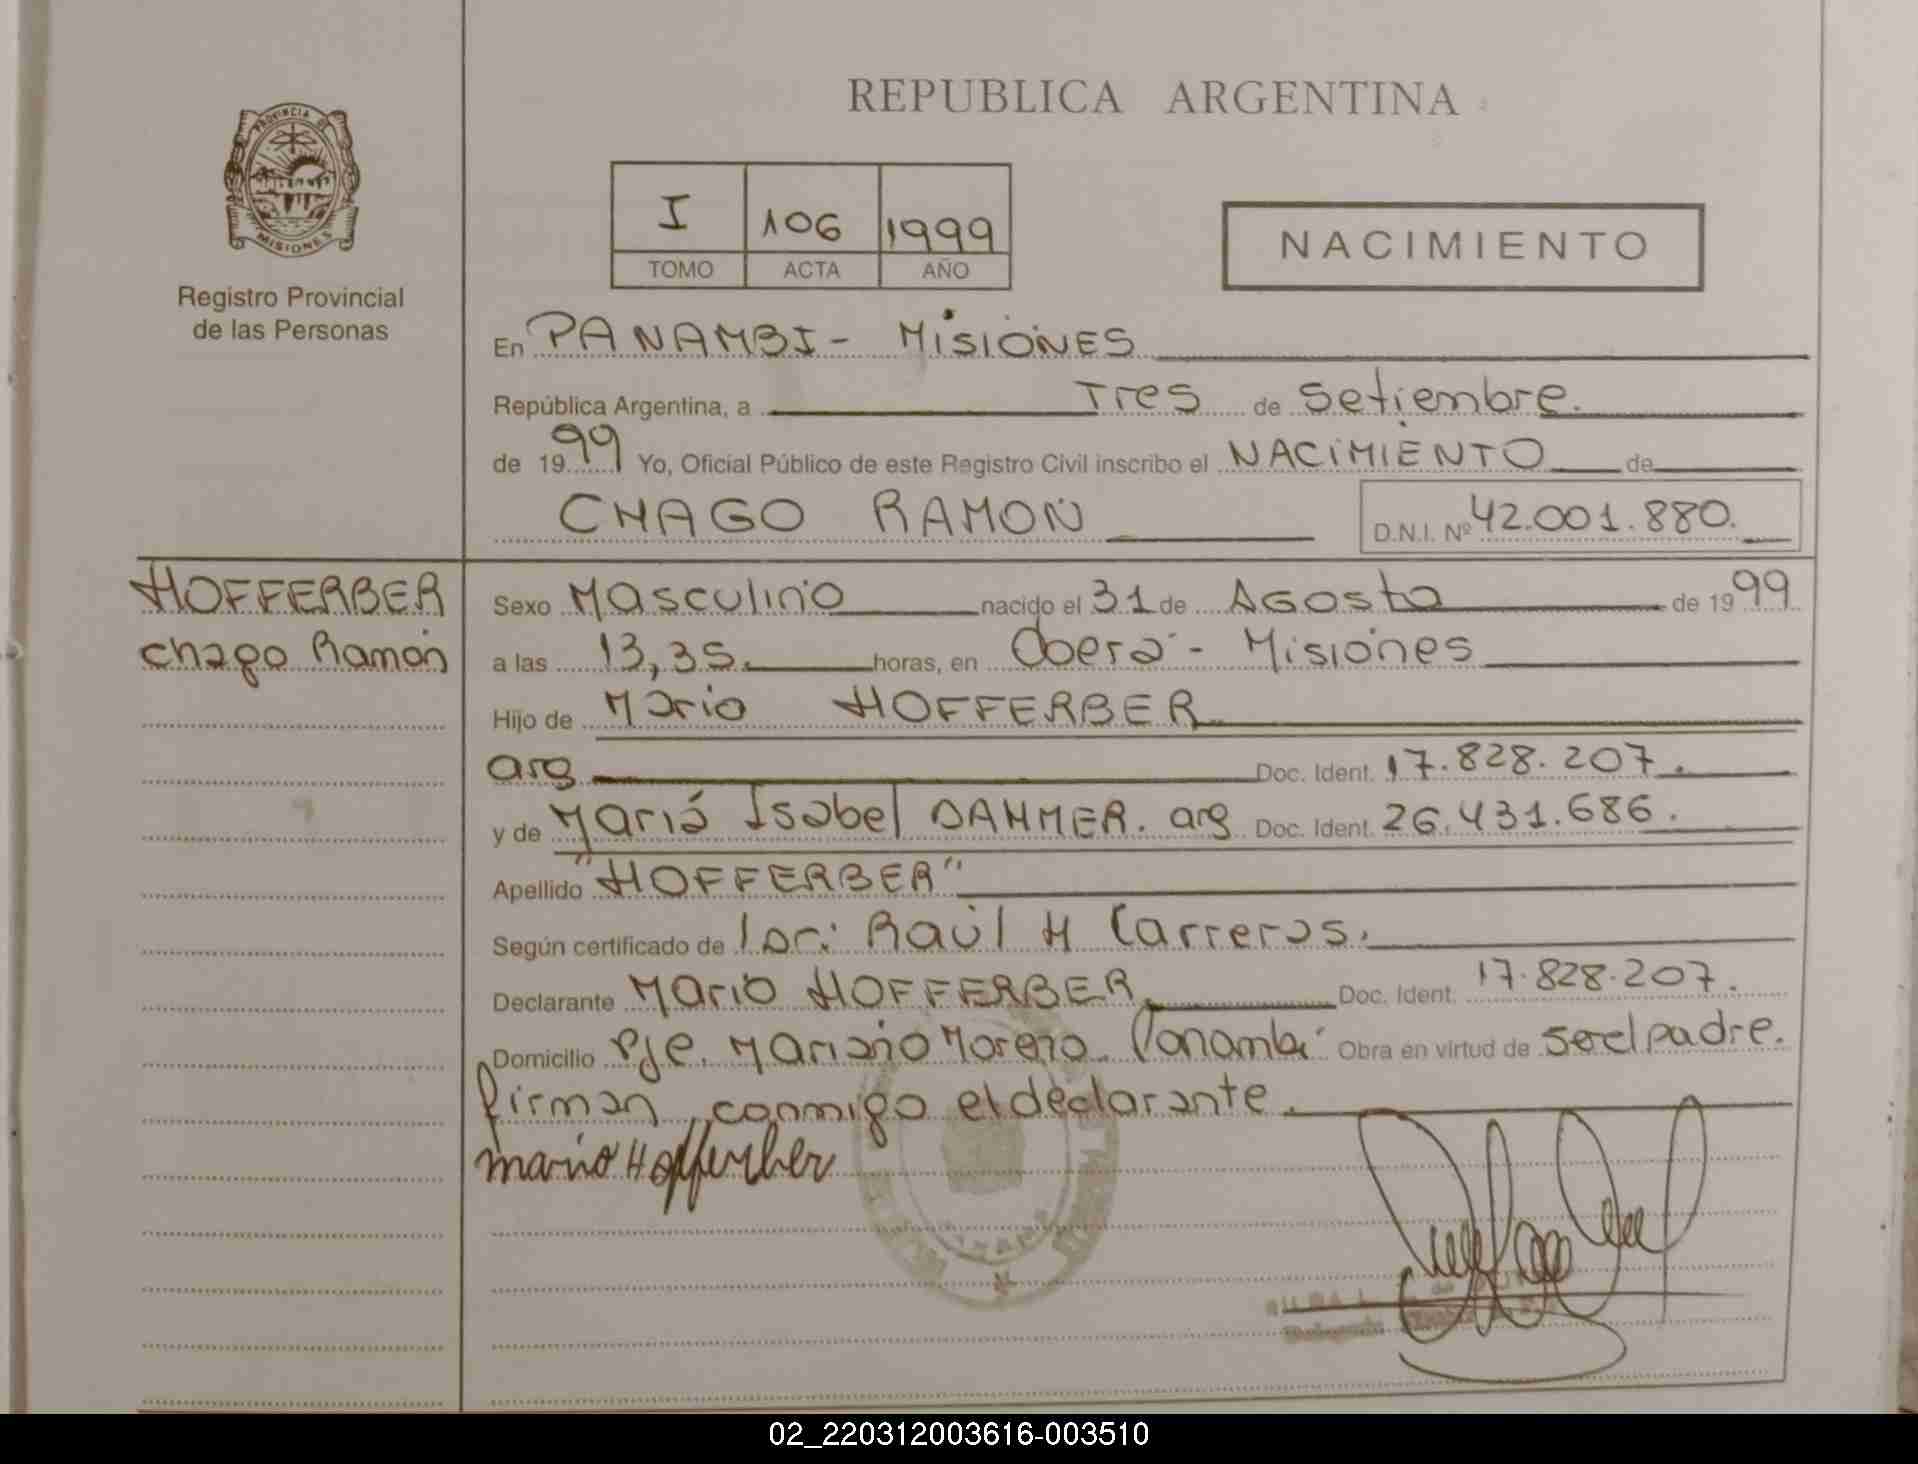 REPUBLICA ARGENTINA
PROVINCIA DE
MISIONES
Registro Provincial
de las Personas
I 106 1999
TOMO ACTA AÑO
NACIMIENTO
En PANAMBI - MISIONES
República Argentina, a Tres de Setiembre.
de 1999 Yo, Oficial Público de este Registro Civil inscribo el NACIMIENTO de
CHAGO RAMON D.N.I. Nº 42.001.880.
HOFFERBER
Chago Ramón
Sexo Masculino nacido el 31 de Agosto de 1999
a las 13,35. horas, en Oberá - Misiones
Hijo de Mario HOFFERBER
arg Doc. Ident. 17.828.207.
y de María Isabel DAMMER. arg Doc. Ident. 26.431.686.
Apellido "HOFFERBER"
Según certificado de Dr: Raúl H Carreras.
Declarante Mario HOFFERBER Doc. Ident. 17.828.207.
Domicilio Pje. Mariano Moreno. Panambí Obra en virtud de ser el padre.
firman conmigo el declarante.
Mario Hofferber
02_220312003616-003510